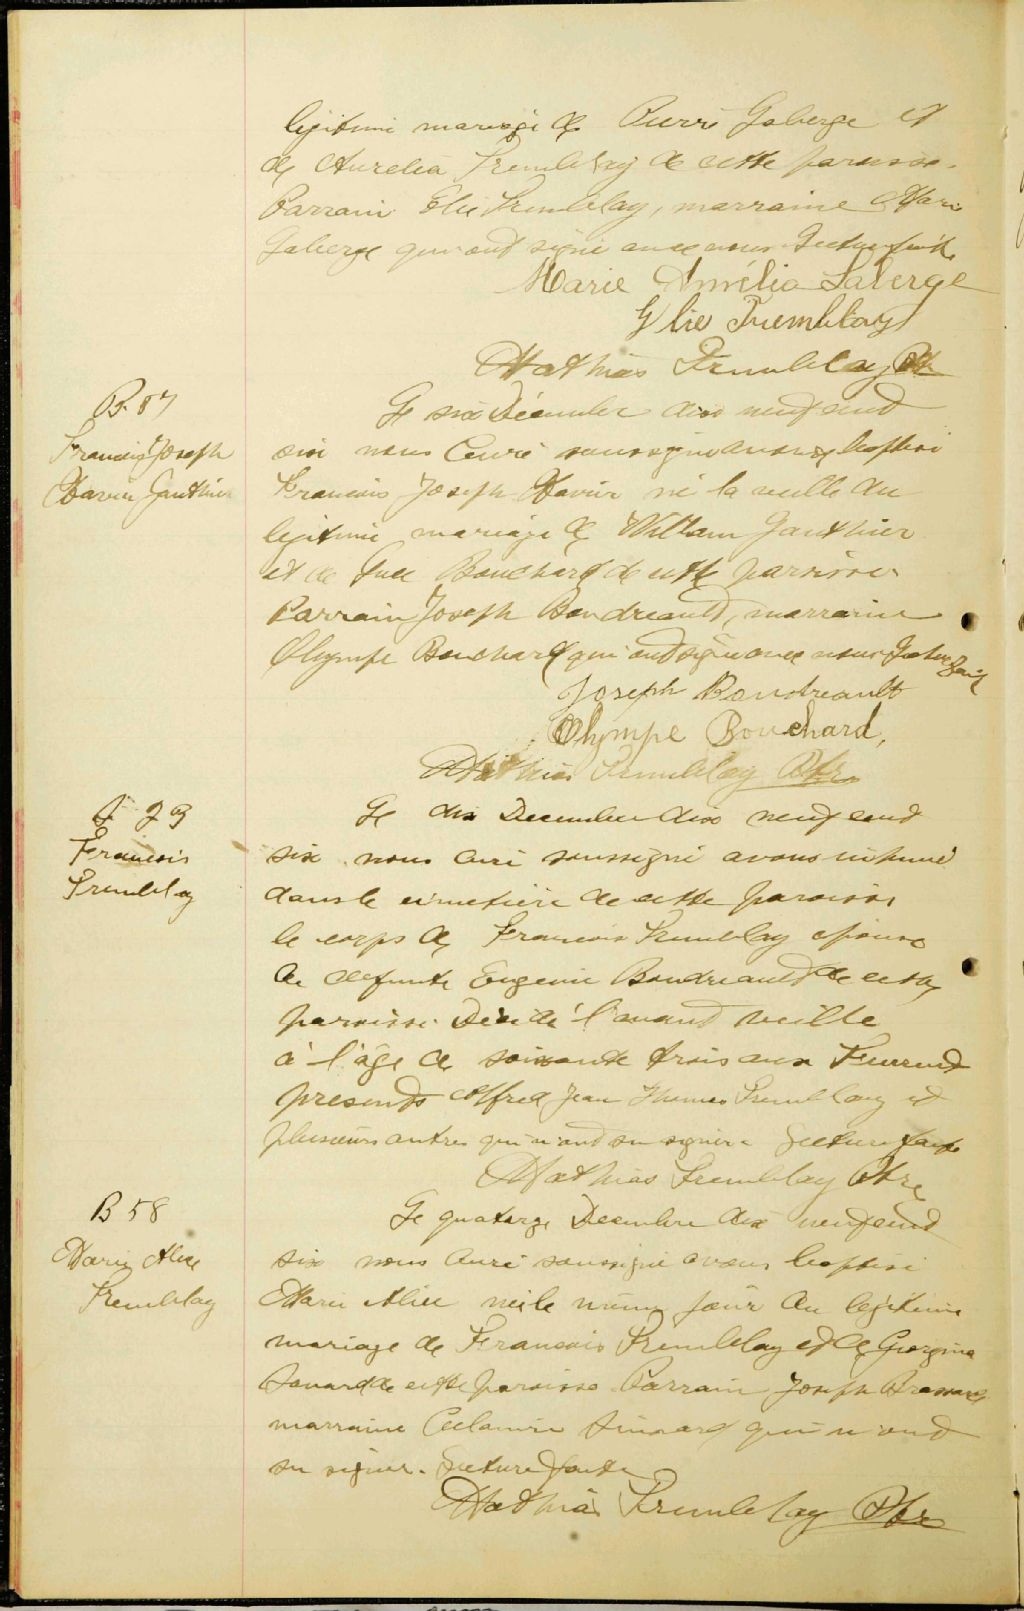 légitime mariage de Pierre Laberge et
de Aurelia Tremblay de cette paroisse.
Parrain Elie Tremblay, marraine Marie
Laberge qui ont signé avec nous. Lecture faite
Marie Amélia Laberge
Elie Tremblay
Mathias Tremblay Ptre
B. 57
Francois Joseph
Xavier Gauthier
Le six Décembre dix neuf cent
six nous Curé soussigné avons baptisé
Francois Joseph Xavier né la veille du
légitime mariage de William Gauthier
et de Luce Bouchard de cette paroisse
Parrain Joseph Boudreault, marraine
Olympe Bouchard qui ont signé avec nous. Lecture faite
Joseph Boudreault
Olympe Bouchard,
Mathias Tremblay Ptre
S 23
Francois
Tremblay
Le dix Decembre dix neuf cent
six nous curé soussigné avons inhumé
dans le cimetière de cette paroisse
le corps de Francois Tremblay epoux
de defunte Eugenie Boudreault de cette
paroisse. Décédé l'avant veille
à l'âge de soixante trois ans Furent
presents Alfred, Jean Thomas Tremblay et
plusieurs autres qui n'ont su signer. Lecture faite
Mathias Tremblay Ptre
B 58
Marie Alice
Tremblay
Le quatorze Decembre dix neuf cent
six nous curé soussigné avons baptisé
Marie Alice née le même jour du légitime
mariage de Francois Tremblay et de Georgina
Savard de cette paroisse. Parrain Joseph Brassard
marraine Simard qui n'ont
su signer. Lecture faite
Mathias Tremblay Ptre